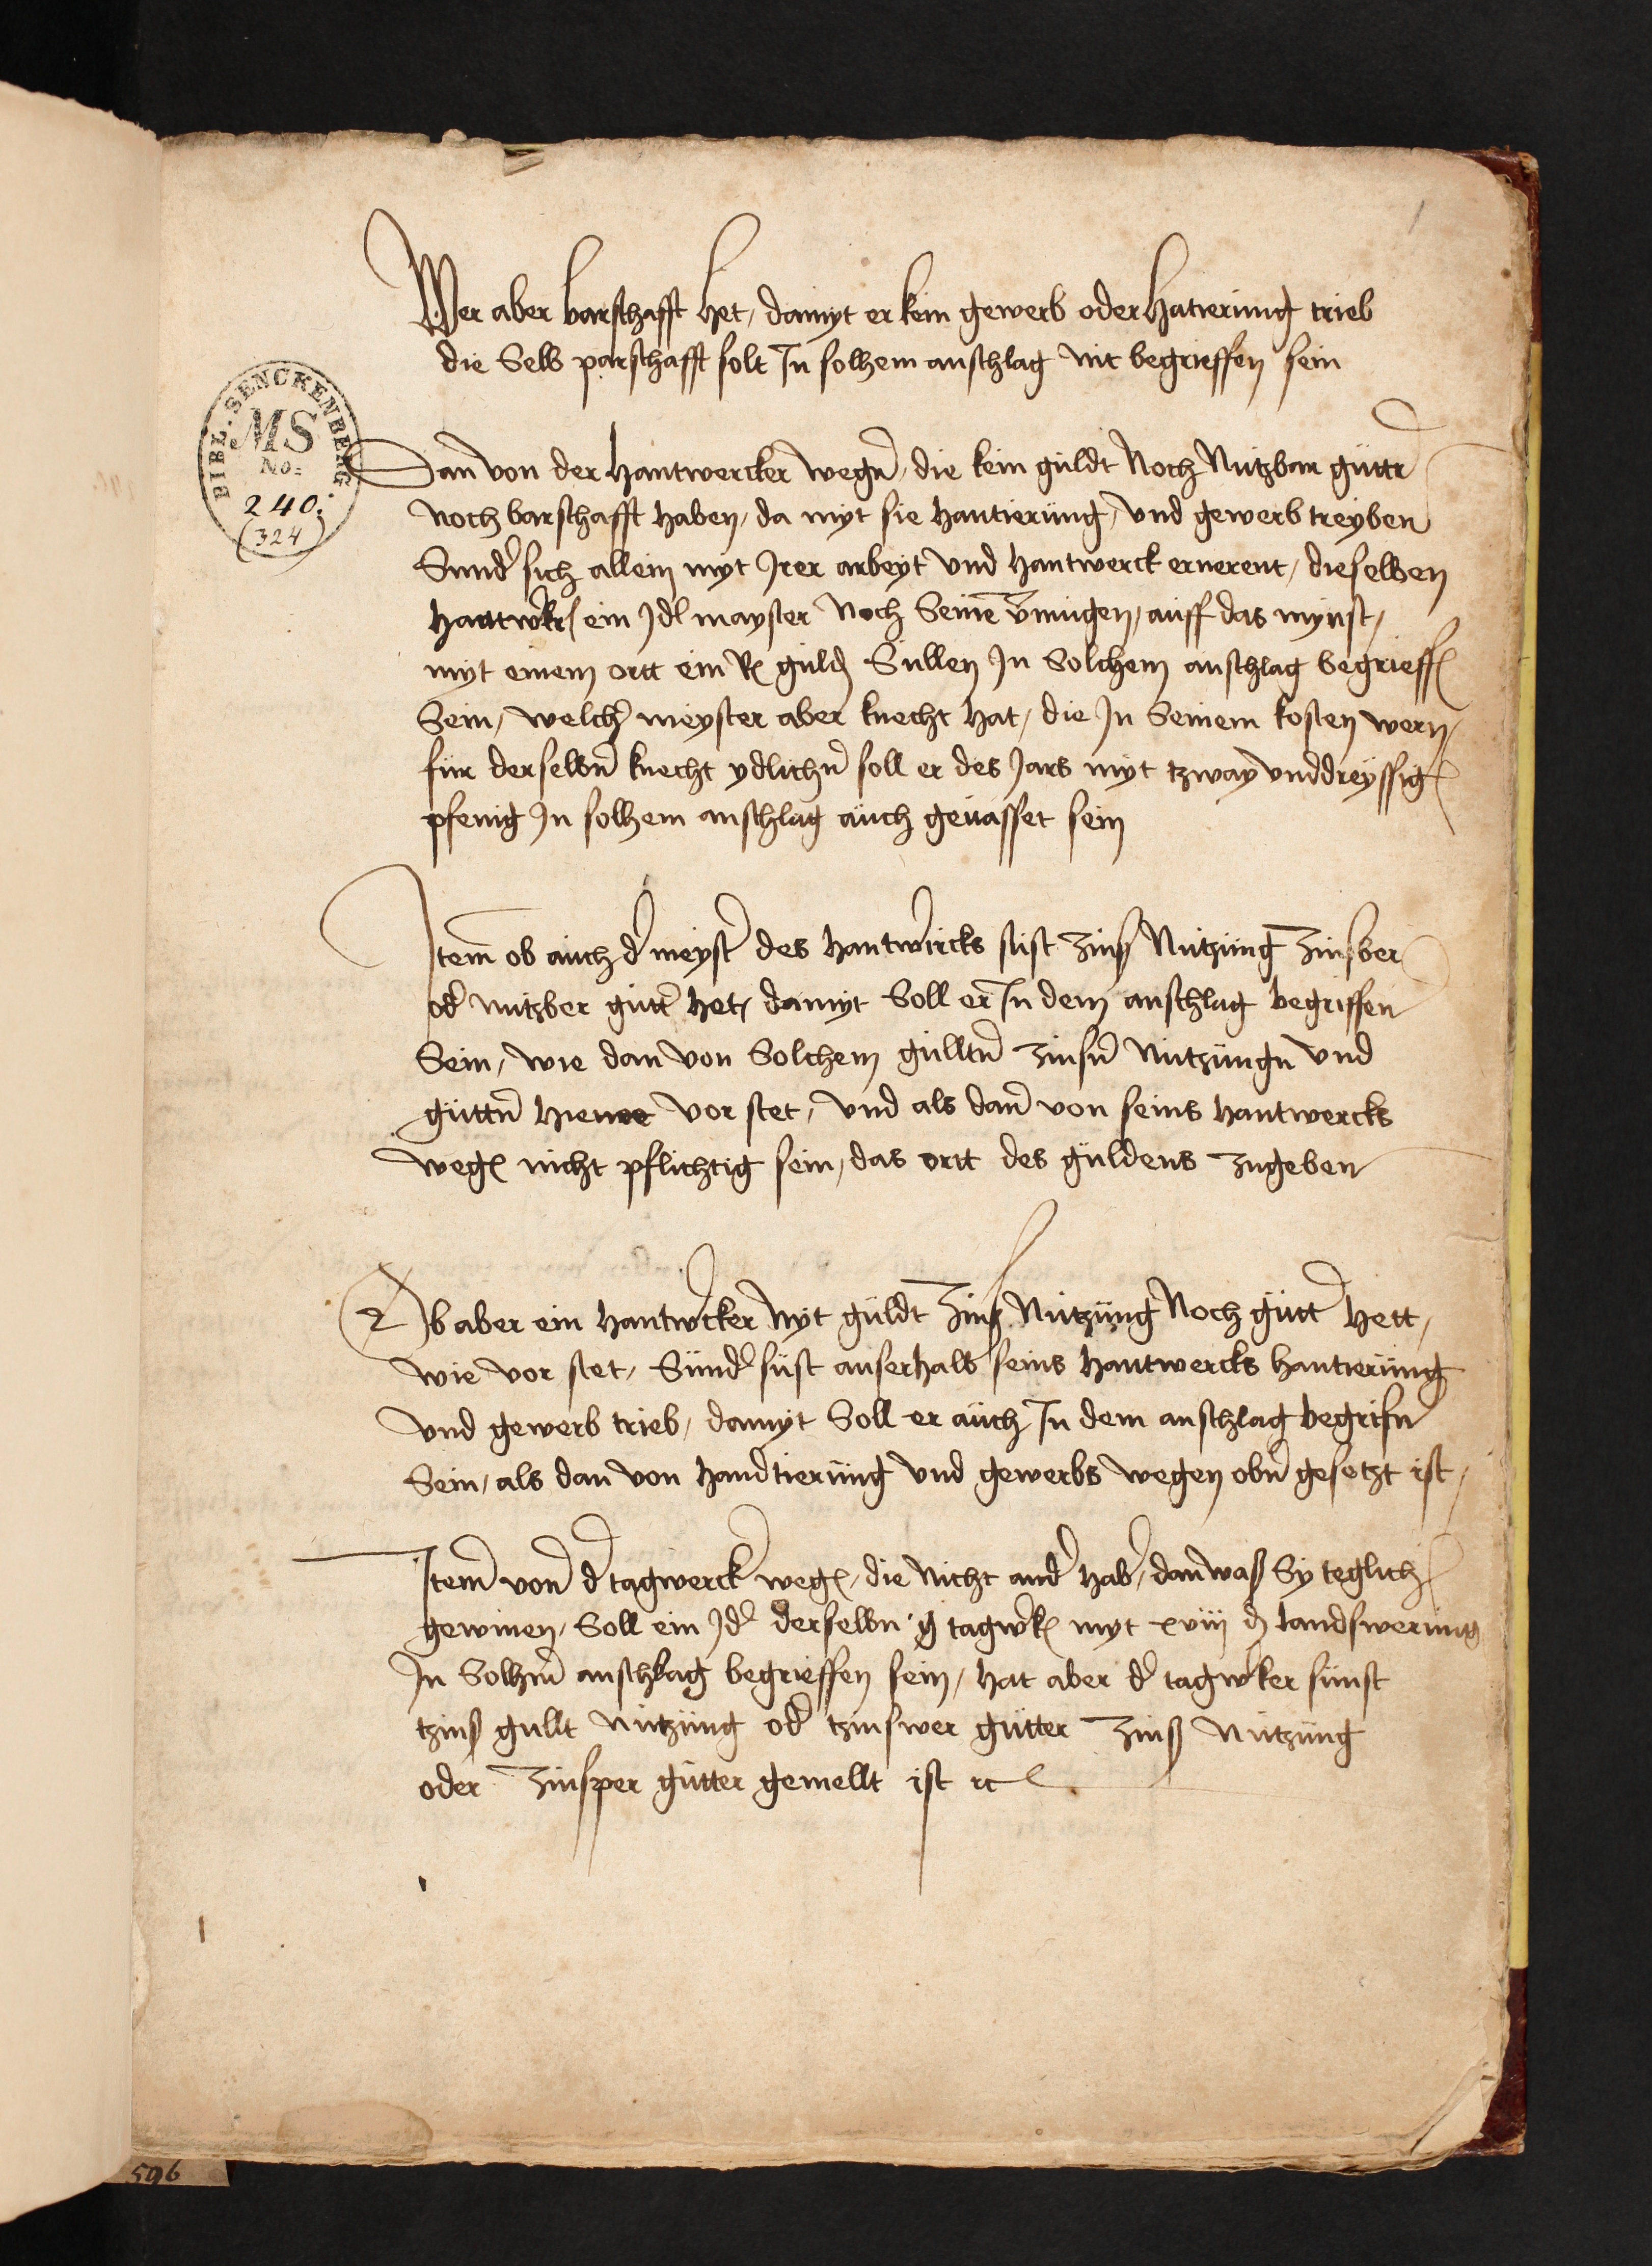 1
Wer aber barschafft het, damyt er kein gewerb oder hatierung trieb
die Selb parschafft solt In solhem anschlag nit begrieffen sein
BIBL. SENCKENBERG.
MS
No:
240.
(324)
Dan von der hantwercker wegn, die kein güldt Noch Nutzbar güttr
noch barschafft haben, da myt sie hantierung, vnd gewerb treyben
Sunder sich allein myt Irer arbeyt vnd hantwerck ernerent, dieselben
ein Jdl mayster Noch Seine vmugen, auff das mynst,
myt einem ortt ein R guld Sullen In Solchem anschlag begrieff
Sein, welcher meyster aber knecht hat, die In Seinem kosten wern,
für derselbn knecht ydlichn soll er des Jars myt tzway vnddreyssig
pfenig In solhem anschlag auch geuasset sein
Item ob auch der meyster des hantwercks sust zinß Nutzung zinsber
oder nutzber gutt het, damyt Soll er In dem anschlag begriffen
Sein, wie dan von Solchem gulltn zinsn Nutzungn vnd
güttn vor stet, vnd als dan von seins hantwercks
weg nicht pflichtig sein, das ortt des guldens zugeben
Ob aber ein hantwercker nyt güldt zinß Nutzung Noch gütt hett,
wie vor stet, Sunder sust auserhalb seins hantwercks hantierung
vnd gewerb trieb, damyt Soll er auch In dem anschlag begrifn
Sein, als dan von handtierung vnd gewerbs wegen obn gesetzt ist,
Item von der tagwercker weg, die nicht ander hab, dan waß Sy teglich
gewinen, Soll ein Jder derselbn tagwerk myt xviij d landswerung
In Solhem anschlag begrieffen sein, hat aber der tagwerker sunst
tzinß gullt nutzung oder tzinswer gütter zinß Nutzung
oder zinsper gütter gemellt ist rc
596